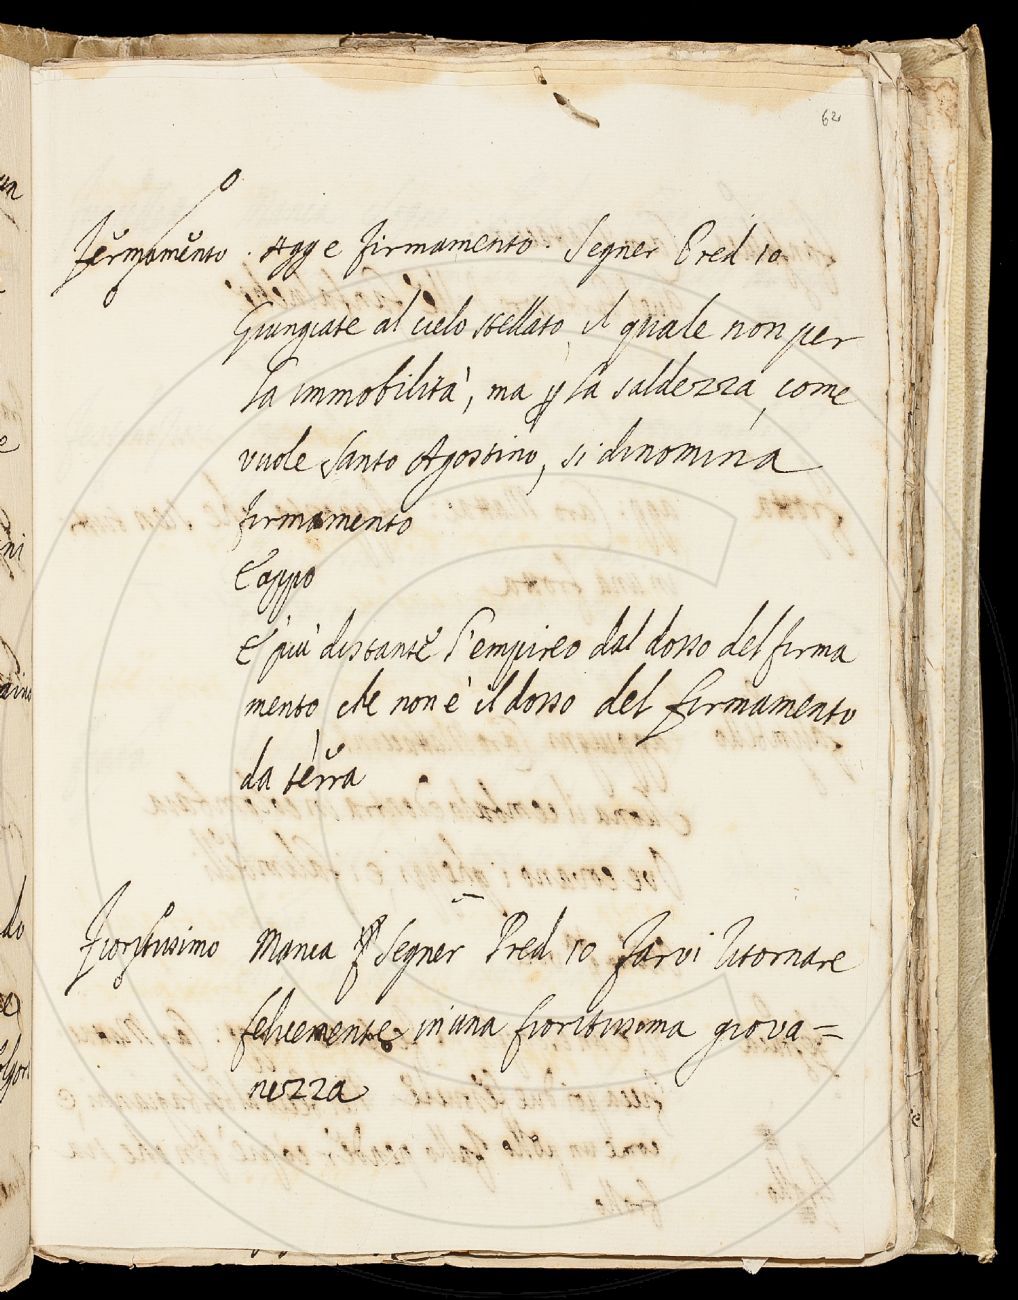 62
Fermamento. Agg e firmamento. Segner Pred 10
Giungiate al cielo stellato, il quale non per
la immobilità, ma p la saldezza, come
vuole Santo Agostino, si dinomina
firmamento
E appo
E più distante l'empireo dal dosso del firma
mento che non è il dosso del firmamento
da terra
Fioritissimo Manca Segner Pred 10 Farvi ritornare
felicemente in una fioritissima giova=
nezza